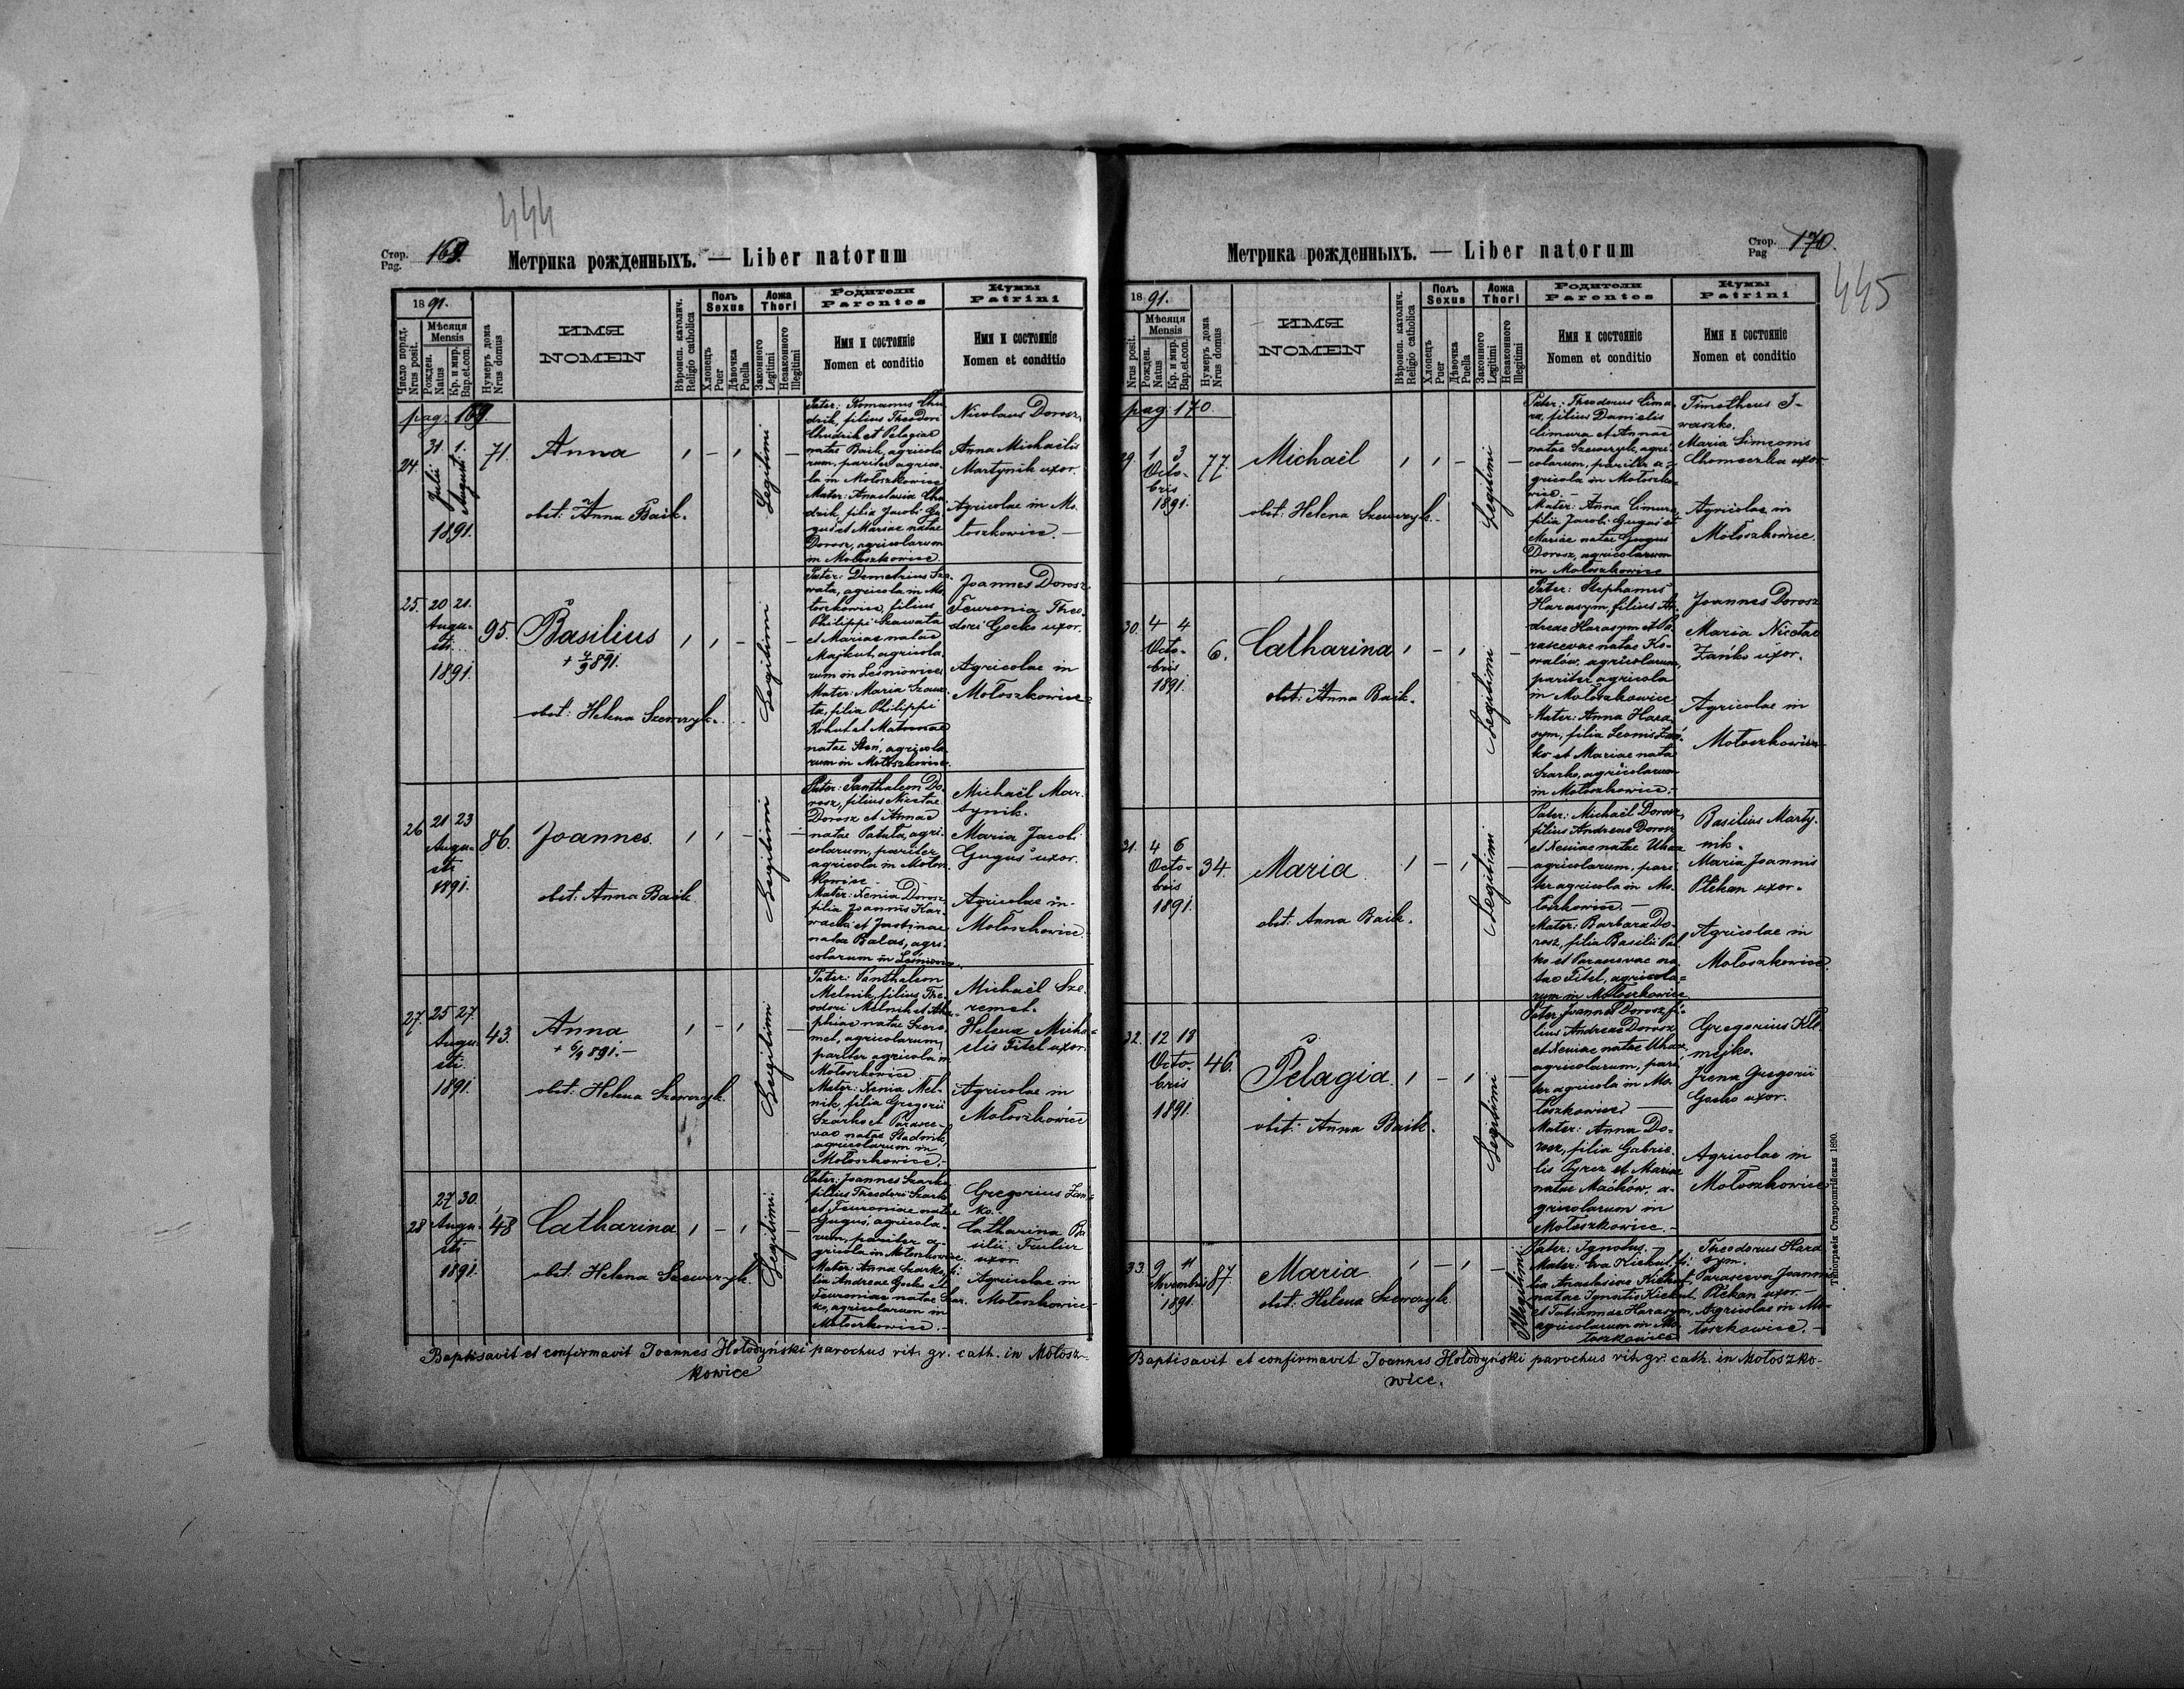 444
Стор. Pag. 169.
Метрика рожденныхъ. — Liber natorum
1891.
Число поряд. Nrus posit.
Мѣсяця Mensis
Рожден. Natus
Кр. и мир. Bap. et con.
Нумеръ дома Nrus domus
ИМЯ
NOMEN
Вѣроисп. католич. Religio catholica
Полъ Sexus
Хлопецъ Puer
Дѣвочка Puella
Ложа Thori
Законного Legitimi
Незаконного Illegitimi
Родители
Parentes
Имя и состояніе
Nomen et conditio
Кумы
Patrini
Имя и состояніе
Nomen et conditio
pag. 169.
24. 31 Julii 1. Augusti 1891. 71.
Anna
obst: Anna Baik.
Legitimi
Pater: Romanus Chu-
drik, filius Theodori
Chudrik et Pelagiae
natae Baik, agricola-
rum, pariter agrico-
la in Mołoszkowice
Mater: Anastasia Chu-
drik, filia Jacobi Gu-
guś et Mariae natae
Dorosz, agricolarum
in Mołoszkowice
Nicolaus Dorosz.
Anna Michaelis
Martynik uxor.
Agricolae in Mo-
łoszkowice. —
25. 20 21. Augu-
sti
1891. 95.
Basilius
+ 4/9 891.
obst: Helena Szewczyk.
Legitimi
Pater: Demetrius Sza-
wata, agricola in Mo-
łoszkowice, filius
Philippi Szawata
et Mariae natae
Majkut, agricola-
rum in Leśniowice
Mater: Maria Szawa-
ta, filia Philippi
Kohut et Matronae
natae Steń, agricola-
rum in Mołoszkowice.
Joannes Dorosz.
Feuronia Theo-
dori Gocko uxor.
Agricolae in
Mołoszkowice
26 21 23
Augu-
sti
1891. 86.
Joannes.
obst: Anna Baik
Legitimi
Pater: Panthaleon Do-
rosz, filius Nicetae
Dorosz et Annae
natae Patała, agri-
colarum, pariter
agricola in Mołosz-
kowice
Mater: Xenia Dorosz
filia Joannis Kar-
wacki et Justinae
natae Balas, agri-
colarum in Leśniowice.
Michaël Mar-
tynik.
Maria Jacobi
Guguś uxor.
Agricolae in
Mołoszkowice.
27. 25 27.
Augu-
sti
1891. 43.
Anna
+ 6/9 891. —
obst: Helena Szewczyk.
Legitimi
Pater: Panthaleon
Melnik, filius The-
odori Melnik et
natae Szere-
met, agricolarum,
pariter agricola in
Mołoszkowice
Mater: Xenia Mel-
nik, filia Gregorii
Szarko et Parasce-
vae natae Stadnik,
agricolarum in
Mołoszkowice. —
Michaël Sze-
remet.
Helena Micha-
elis Fitel uxor.
Agricolae in
Mołoszkowice
28 27 30.
Augu-
sti
1891. 48
Catharina
obst: Helena Szewczyk.
Legitimi.
Pater: Joannes Szarko,
filius Theodori Szarko
et Feuroniae natae
Guguś, agricola-
rum, pariter a-
gricola in Mołoszkowice
Mater: Anna Szarko, fi-
lia Andreae Gocko et
Feuroniae natae Szar-
ko, agricolarum in
Mołoszkowice. —
Gregorius Żań-
ko. —
Catharina Ba-
silii
uxor.
Agricolae in
Mołoszkowice
Baptisavit et confirmavit Joannes Hołodyński parochus rit. gr. cath. in Mołosz-
kowice
Метрика рожденныхъ. — Liber natorum
Стор. Pag 170.
445
1891.
Nrus posit.
Мѣсяця Mensis
Рожден. Natus
Кр. и мир. Bap. et con.
Нумеръ дома Nrus domus
ИМЯ
NOMEN
Вѣроисп. католич. Religio catholica
Полъ Sexus
Хлопецъ Puer
Дѣвочка Puella
Ложа Thori
Законного Legitimi
Незаконного Illegitimi
Родители
Parentes
Имя и состояніе
Nomen et conditio
Кумы
Patrini
Имя и состояніе
Nomen et conditio
pag. 170.
29. 1 3
Octo-
bris
1891. 77.
Michaël
obst: Helena Szewczyk.
Legitimi
Pater: Theodorus Cimu-
ra, filius Danielis
Cimura et Annae
natae Szewczyk, agri-
colarum, pariter a-
gricola in Mołoszko-
wice. —
Mater: Anna Cimura,
filia Jacobi Guguś et
Mariae natae Guguś
Dorosz, agricolarum
in Mołoszkowice
Timotheus I-
waszko.
Maria Simeonis
Chomeczka uxor
Agricolae in
Mołoszkowice.
30. 4 4
Octo-
bris
1891. 6.
Catharina
obst: Anna Baik.
Legitimi
Pater: Stephanus
Harasym, filius An-
dreae Harasym et Pa-
rascevae natae Ko-
walów, agricolarum,
pariter agricola
in Mołoszkowice
Mater: Anna Hara-
sym, filia Leonis Żań-
ko et Mariae natae
Szarko, agricolarum
in Mołoszkowice. —
Joannes Dorosz
Maria Nicetae
Żańko uxor.
Agricolae in
Mołoszkowice
31. 4 6
Octo-
bris
1891. 34.
Maria
obst: Anna Baik.
Legitimi
Pater: Michaël Dorosz,
filius Andreae Dorosz
et Xeniae natae
agricolarum, pari-
ter agricola in Mo-
łoszkowice. —
Mater: Barbara Do-
rosz, filia Basilii Pal-
ko et Parascevae na-
tae Fitel, agricola-
rum in Mołoszkowice
Basilius Marty-
nik.
Maria Joannis
Płekan uxor.
Agricolae in
Mołoszkowice.
32. 12 18
Octo-
bris
1891. 46.
Pelagia.
obst: Anna Baik.
Legitimi
Pater: Joannes Dorosz fi-
lius Andreae Dorosz
et Xeniae natae
agricolarum, pari-
ter agricola in Mo-
łoszkowice —
Mater: Anna Do-
rosz, filia Gabrie-
lis Pyrcz et Mariae
natae Maćków, a-
gricolarum in
Mołoszkowice. —
Gregorius Kłe-
mejko.
Irena Gregorii
Gocko uxor.
Agricolae in
Mołoszkowice
33. 9 11
Novembris
1891. 87.
Maria
obst: Helena Szewczyk.
Illegitimi
Pater: Ignotus. —
Mater: Eva Kickut, fi-
lia Anastasiae Kickut,
natae Ignatii Kickut
et Tatiannae Harasym,
agricolarum in Mo-
łoszkowice
Theodorus Hara-
sym.
Parasceva Joannis
Płekan uxor. —
Agricolae in Mo-
łoszkowice. —
Baptisavit et confirmavit Joannes Hołodyński parochus rit. gr. cath. in Mołoszko-
wice.
Типографія Ставропигійская 1890.